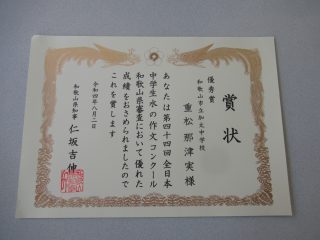 賞状
優秀賞
和歌山市立加太中学校
重松那津実様
あなたは第四十四回全日本
中学生水の作文コンクール
和歌山県審査において優れた
成績をおさめられましたので
これを賞します
令和四年八月二日
和歌山県知事 仁坂吉伸